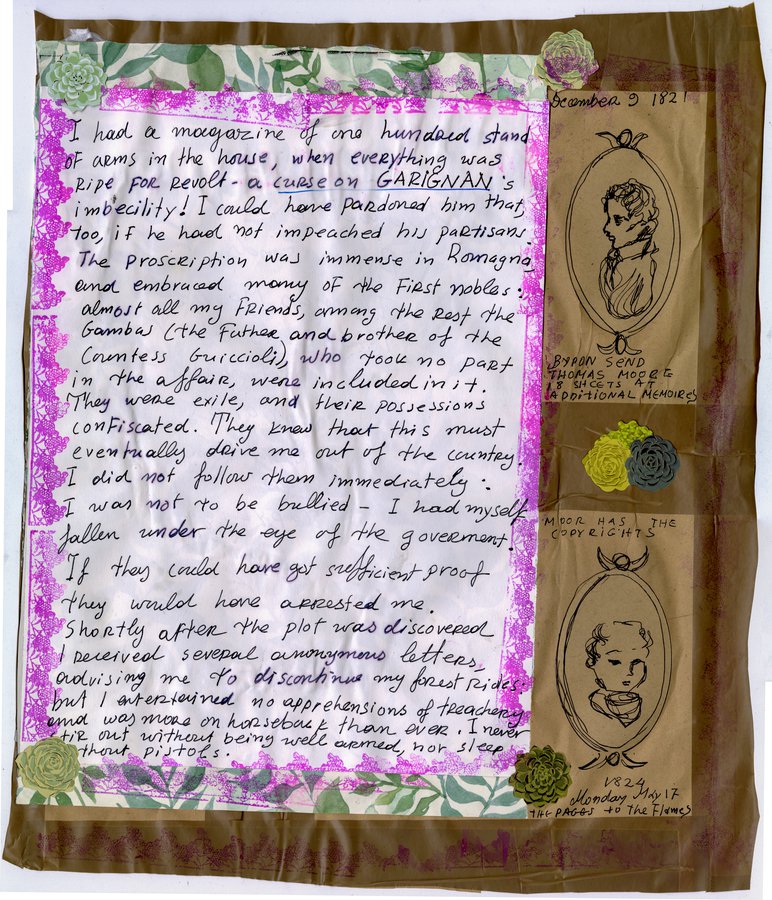 I had a magazine of one hundred stand
of arms in the house, when everything was
RIPE FOR REVOLT - a CURSE ON GARIGNAN's
imbecility! I could have pardoned him that,
too, if he had not impeached his partisans.
The proscription was immense in Romagna,
and embraced many of the first nobles:
almost all my friends, among the rest the
Gambas (the Father and brother of the
Countess Guiccioli), who took no part
in the affair, were included in it.
They were exile, and their possessions
confiscated. They knew that this must
eventually drive me out of the country.
I did not follow them immediately:
I was not to be bullied - I had myself
fallen under the eye of the goverment.
If they could have got sufficient proof
they would have arrested me.
Shortly after the plot was discovered
I received several anonymous letters,
advising me to discontinue my forest rides:
but I entertained no apprehensions of treachery
and was more on horseback than ever. I never
stir out without being well armed, nor sleep
thout pistols.
December 9 1821
BYRON SEND
THOMAS MOORE
8 SHEETS AT
ADDITIONAL MEMOIRES
MOOR HAS THE
COPYRIGHTS
1824
Monday May 17
THE PAGES TO THE FLAMES